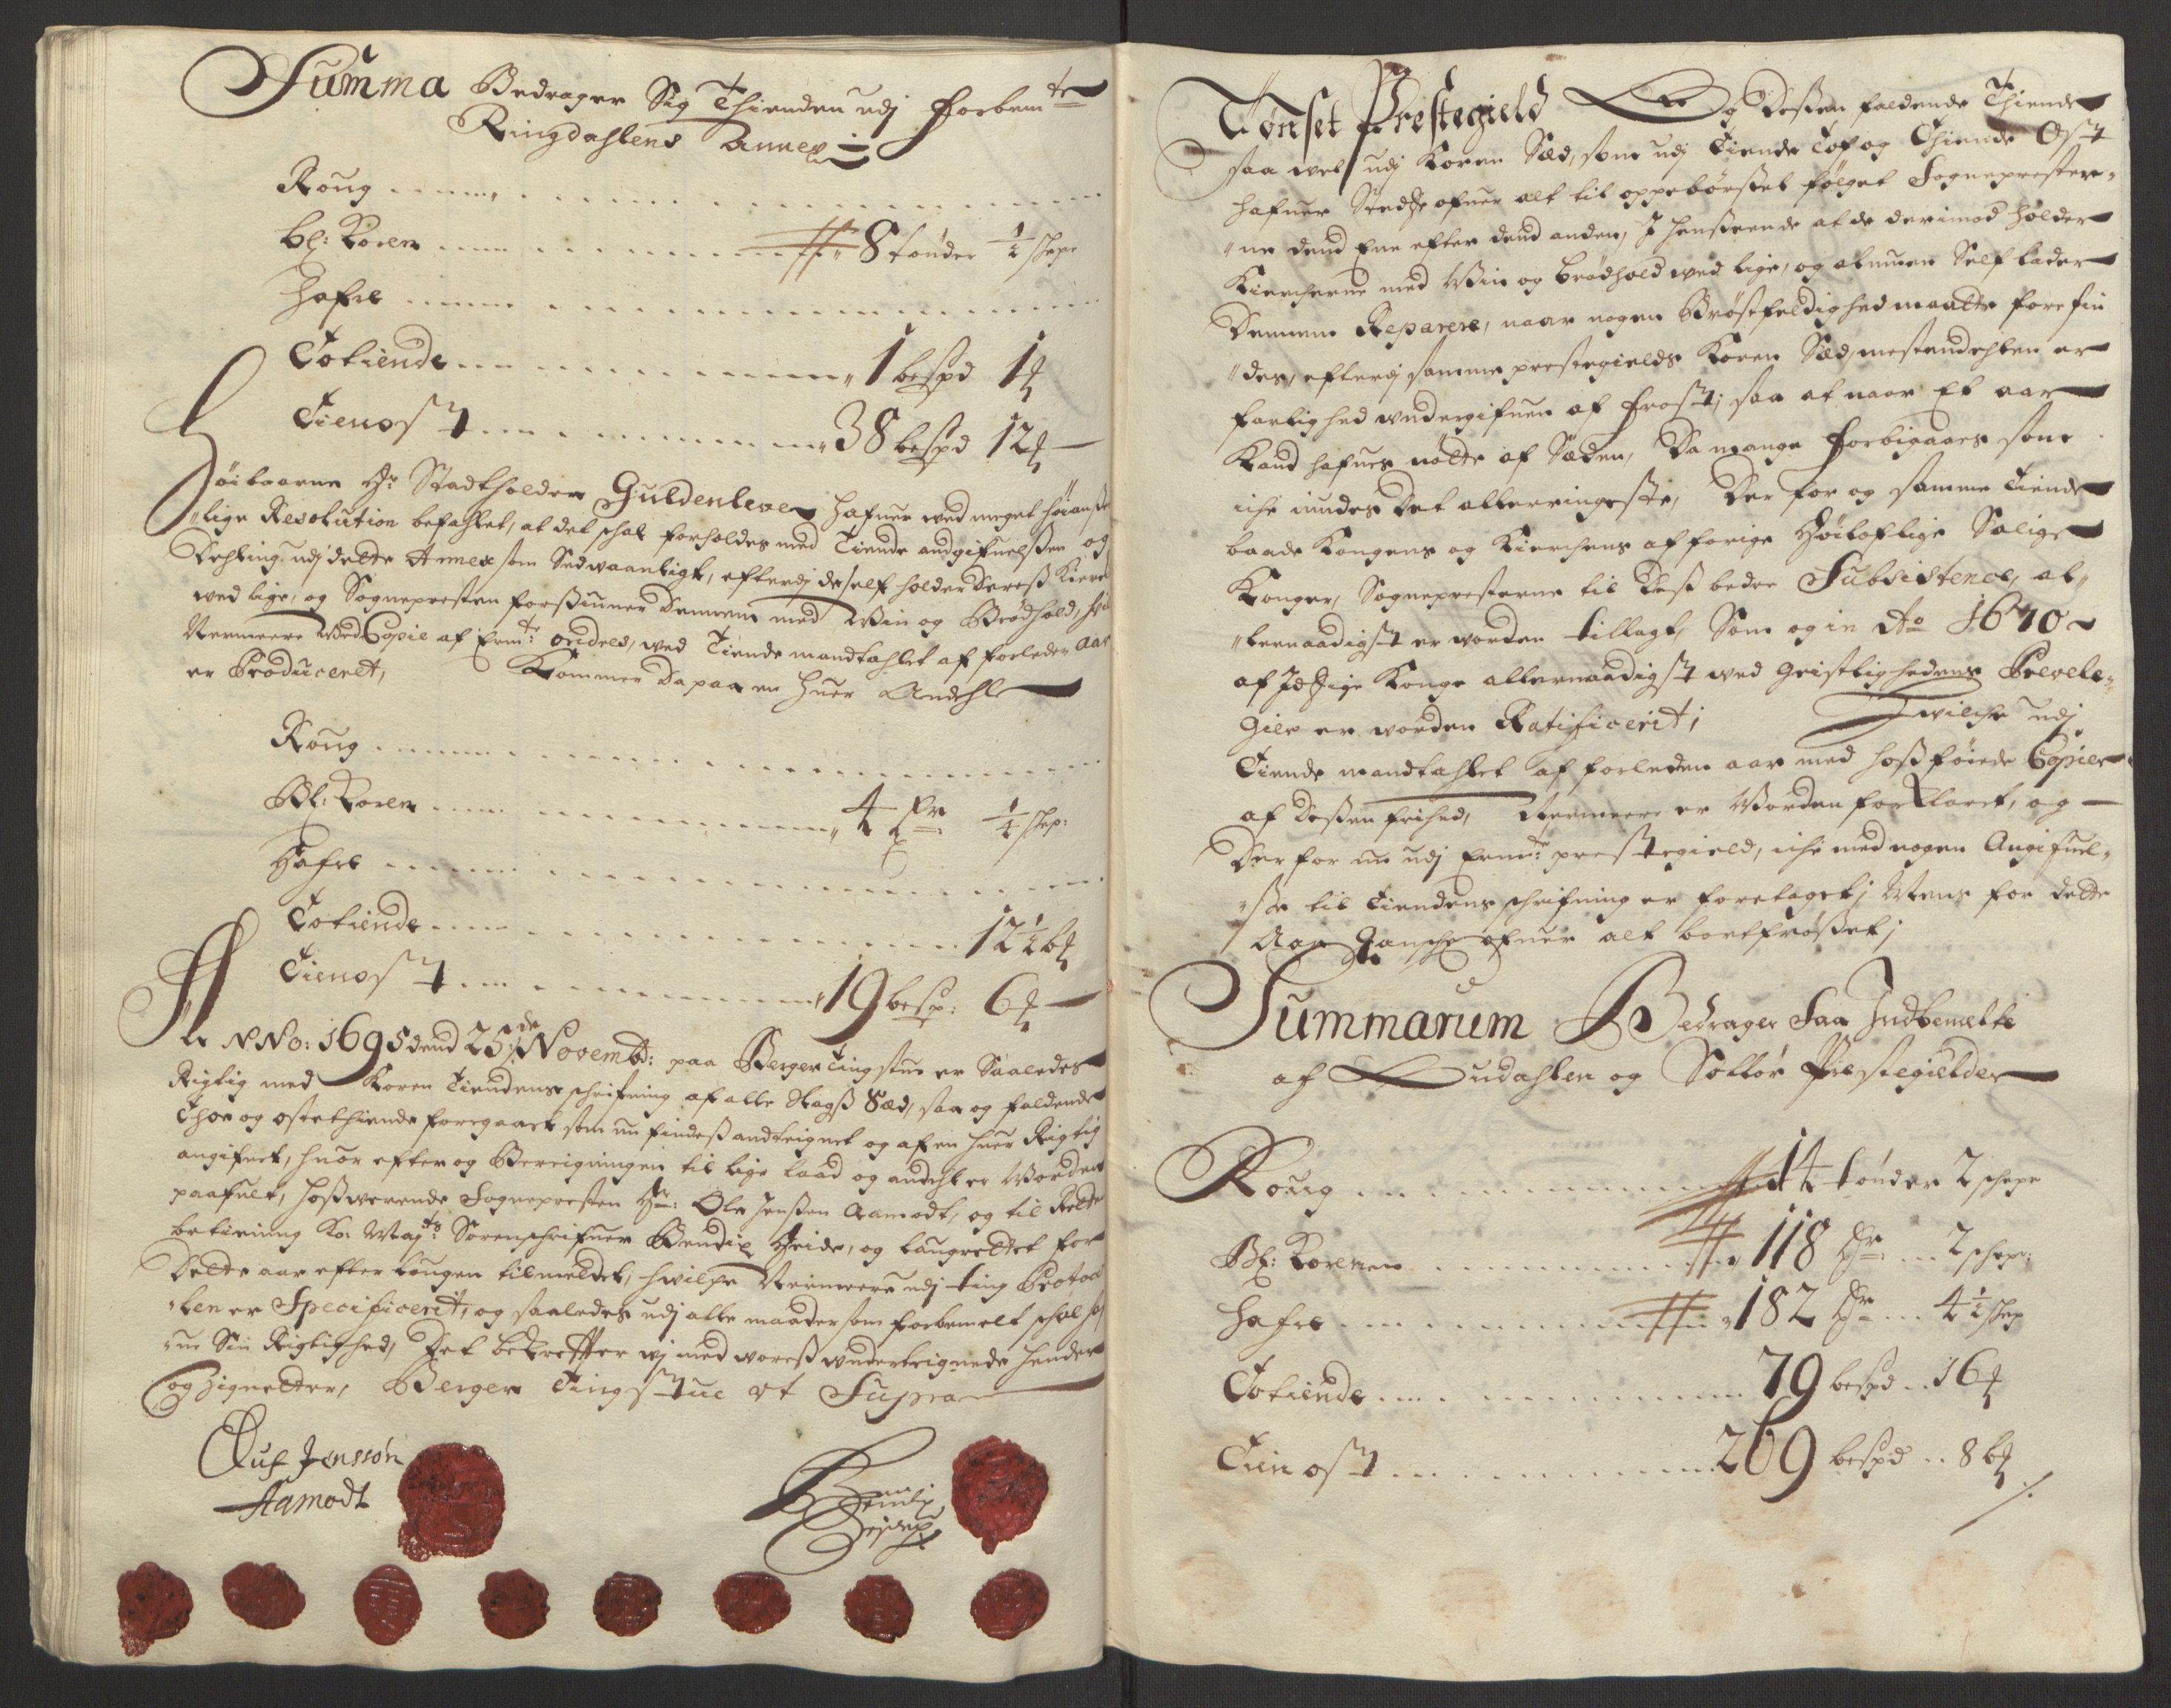 Summa Bedrager Sig Thienden udj forbem.te
Ringdahlens Annex
Roug
bl: Koren 8 tønder ½ schpe
Hafre
Totiende 1 bespd 1 ₰
Tienost 38 bespd 12 ₰
Høibaarne Hr Stadtholder Guldenleve hafuer ved meget høianse
lige Resolution befahlet, at det schal forholdes med Tiende andgifuelsen og
Dehling udj dette Annex som Sedvaanligt, efterdj de self holder Deress Kierche
ved lige, og Sognepresten forssiuner Dennem med Wiin og Brødhold, hvi
Nermeere Ved Copie af Erm.te ordres, ved Tiende mandtahlet af forleden Aar
er Produceret, Kommer Da paa en huer Andehl
Roug
Bl: Koren 4 Hr ¼ schep:
Hafre
Totiende 12½ b₰
Tienost 19 besp: 6 ₰
ANNo: 1695 dend 25de Novemb: paa Bergen Tingstue er Saaledes
Rigtig med Koren Tiendens schrifning af alle Slagss Sæd, saa og faldende
Thoe og ostethiende foregaaet som nu findess andteignet og af en huer Rigtig
angifuet, huor efter og Bereigningen til lige laad og andehl er Worden
paafult, hossverende Sognepresten Hr: Ole Jenssen Aamodt, og til Rette
betiening Ko: May.ts Sorenschrifuer Bendix Heide, og laugrettet for
Dette aar efter lougen tilmeldet, hwilche Nermeere udj ting Protoco
len er Specificerit, og saaledes udj alle maader som forbemelt schal ha
ue Sin Rigtighed, Det bekreffter wj med voress underteignede hender
og Zignetter, Bergen Tingstue ut Supra
Oluf Jenssøn
Aamodt
Bendix
Heide
Tønset Prestegield Og Dessen faldende Thiende
saa vel udj Koren Sæd, som udj Tiende Toe og Thiende Ost
hafuer Stedze ofuer alt til oppebørssel følget Sogneprestere
ne dend Ene efter dend anden, I henseende at de derimod holder
Kiercherne med Wiin og brødhold ved lige, og almuen Self lader
Dennem Reparere, naar nogen Brøstfeldighed maatte forefin
des, efterdj samme prestegields Koren Sæd, mestendehlen er
farlighed undergifuen af Frost; saa at naar Et aar
Kand hafues nøtte af Sæden, Da mange forbigaaes som
iche iundes Det alleringeste, Derfor og samme Tiende
baade Kongens og Kierchens af forige Høiloflige Salige
Konger, Sognepresterne til Dess bedre Subsistence, al
lernaadigst er worden tillagt, Som og in Ao 1670
af Itzige Konge allernaadigst ved Geistlighedens Prevele
gier er worden Ratificerit; Hwilche udj
Tiende mandtahlet af forleden aar med hossføiede Copier
af Dessen frihed, Nermeere er Worden forKlaret, og
Derfor nu udj Erm.te prestegield, iche med nogen Angifuel
sse til Tiendens schrifning er foretaget; Mens for dette
Aar Gansche ofuer alt bortfrosset;
Summarum Bedrager Saa Indbemelte
af Eudahlen og Sollør Prestegielder
Roug 14 tønder 2 schepe
Bl: Korenn 118 Hr 2 schepe:
Hafre 182 Hr 4½ schep
Totiende 79 bespd 16 ₰
Tienost 269 bespd 8 b₰